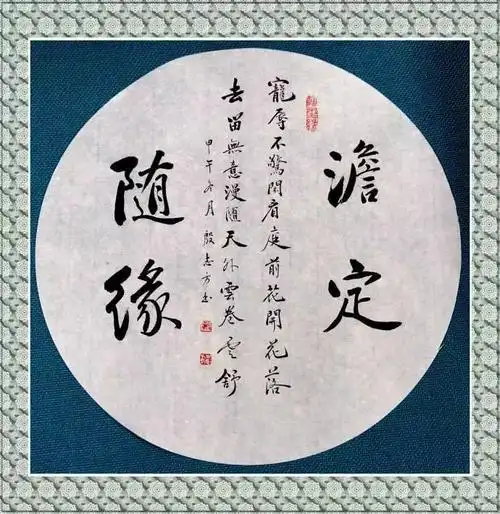 澹定
寵辱不驚閑看庭前花開花落
去留無意漫隨天外雲卷雲舒
甲午冬月 殷志方书
随緣